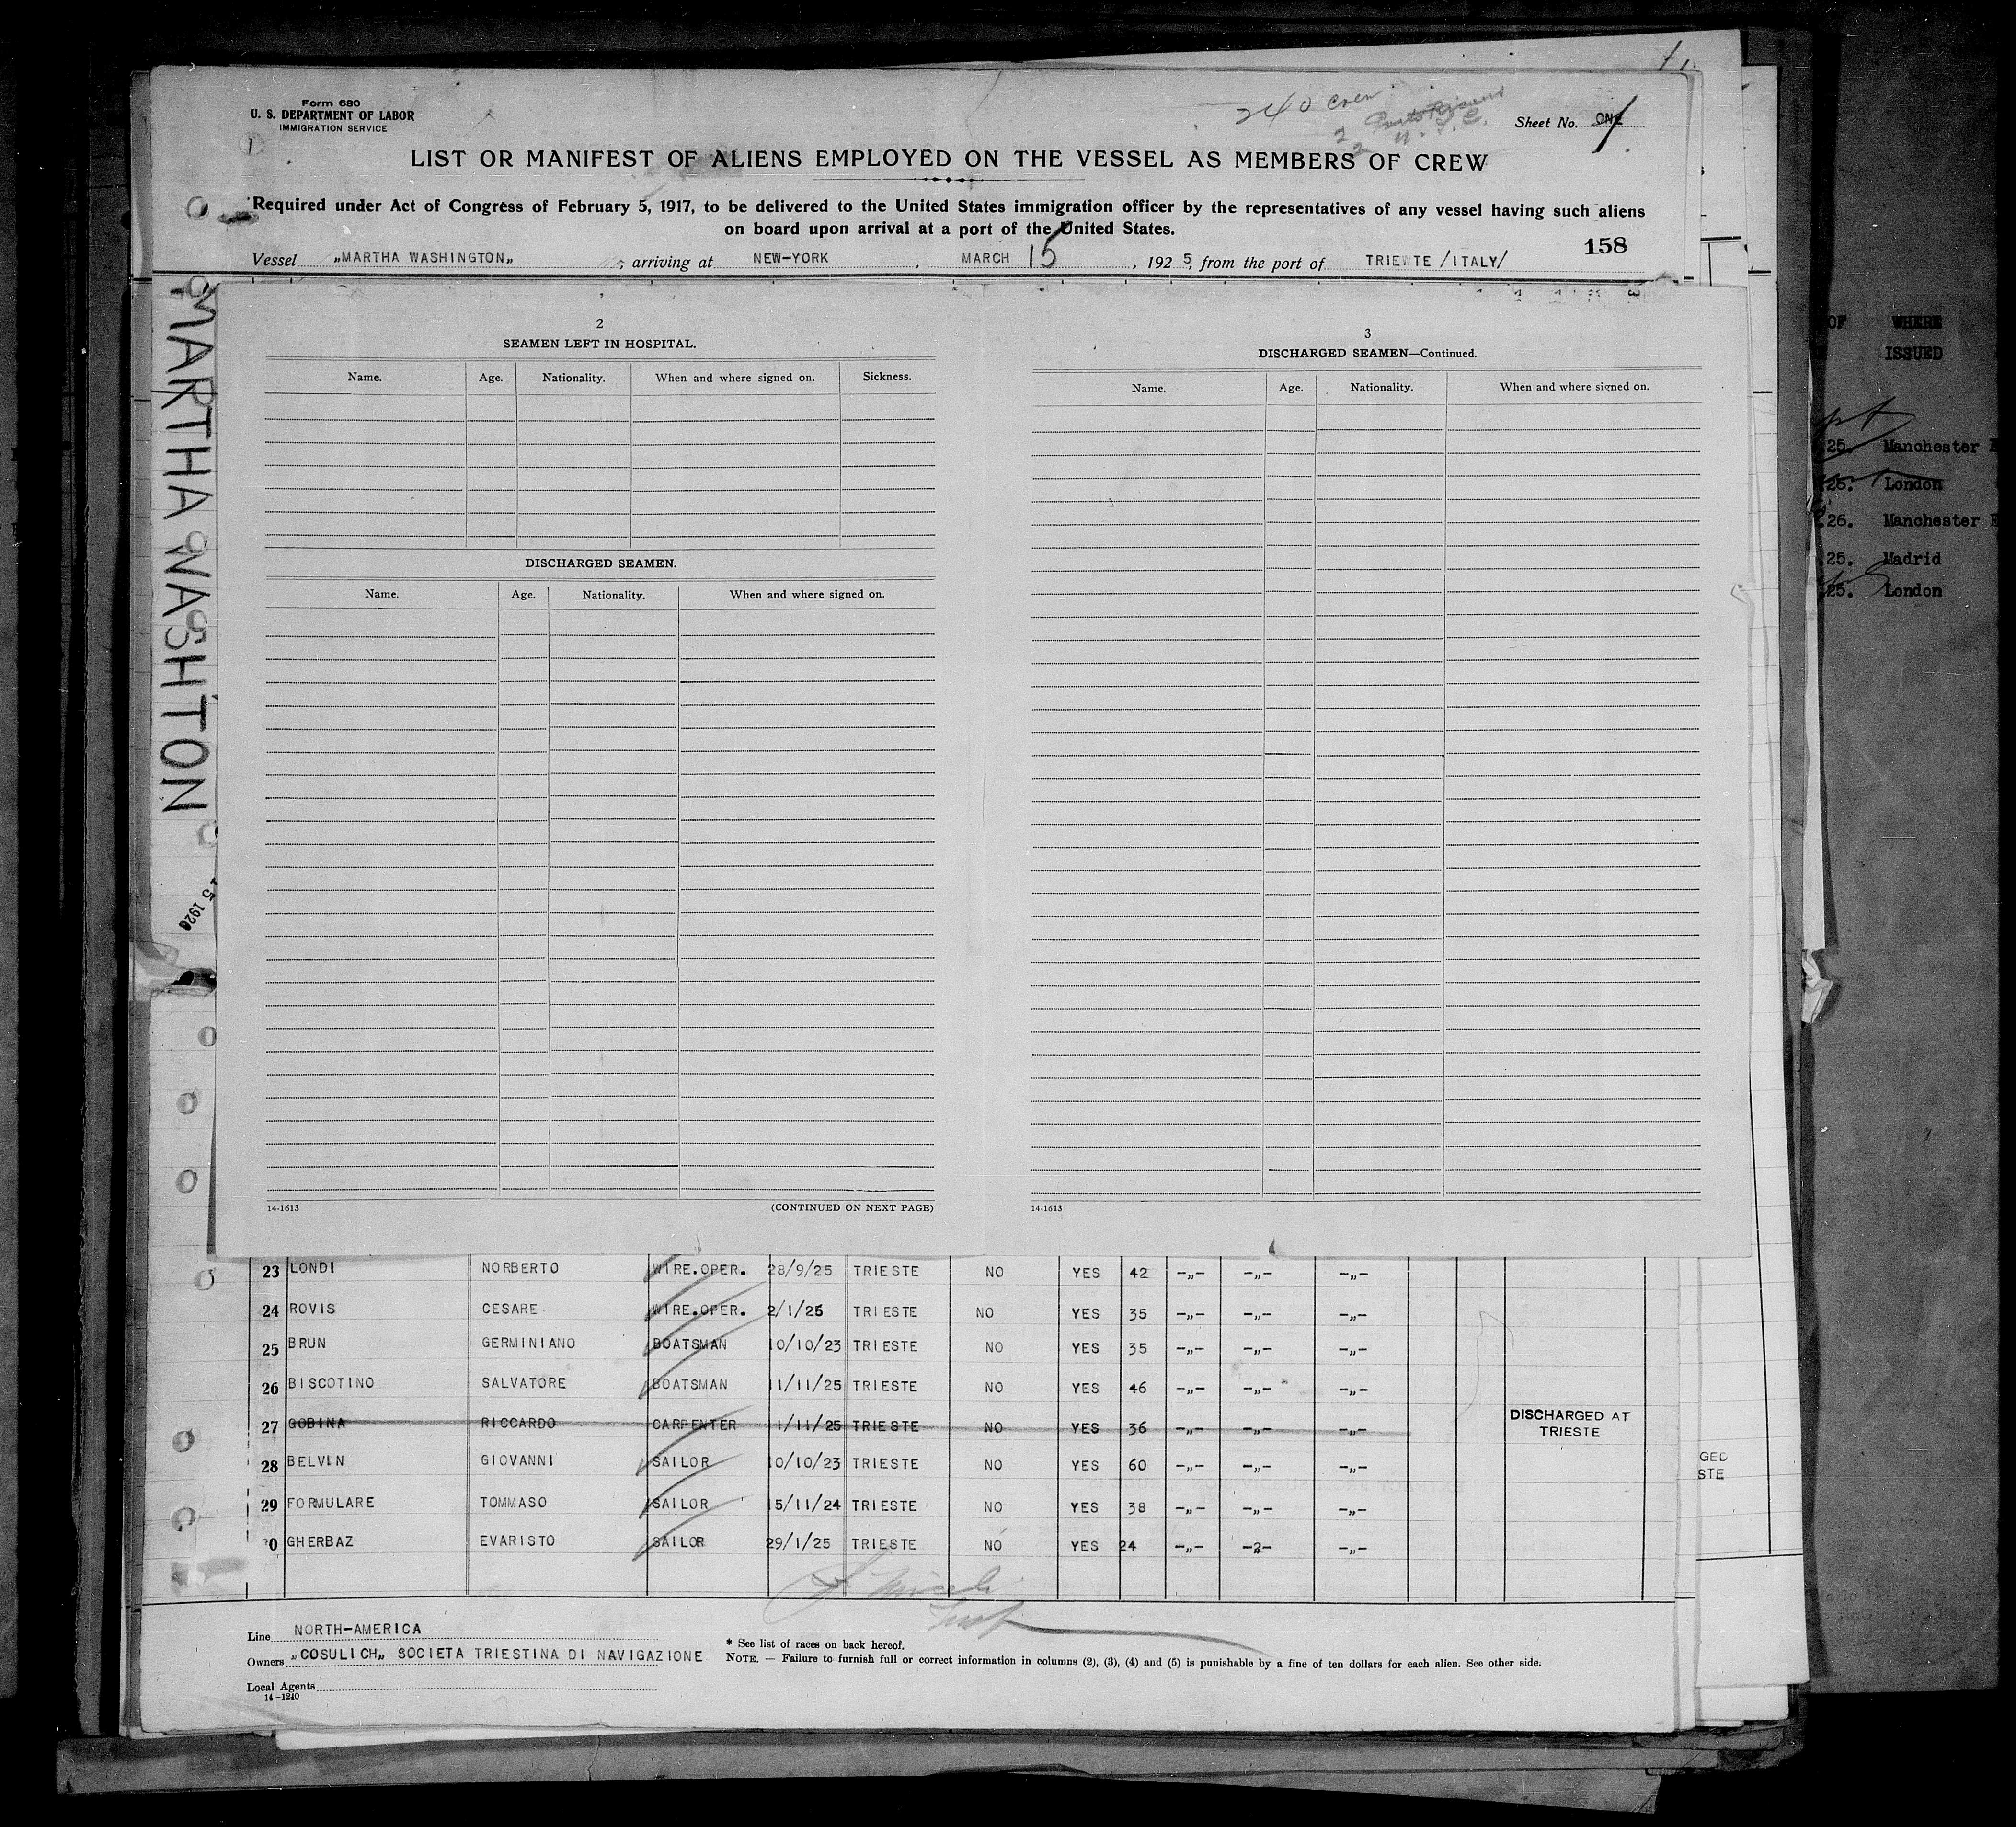 Form 680
U. S. DEPARTMENT OF LABOR
IMMIGRATION SERVICE
240 crew
2
2
Sheet No. ONE 1
LIST OR MANIFEST OF ALIENS EMPLOYED ON THE VESSEL AS MEMBERS OF CREW
Required under Act of Congress of February 5, 1917, to be delivered to the United States immigration officer by the representatives of any vessel having such aliens
on board upon arrival at a port of the United States.
158
Vessel „MARTHA WASHINGTON„, arriving at NEW-YORK, MARCH 15, 192 5, from the port of TRIESTE /ITALY/
MARTHA WASHTON
15 1926
2
SEAMEN LEFT IN HOSPITAL.
Name. Age. Nationality. When and where signed on. Sickness.
DISCHARGED SEAMEN.
Name. Age. Nationality. When and where signed on.
14-1613 (CONTINUED ON NEXT PAGE)
3
DISCHARGED SEAMEN—Continued.
Name. Age. Nationality. When and where signed on.
14-1613
23 LONDI NORBERTO WIRE.OPER. 28/9/25 TRIESTE NO YES 42 -„- -„- -„-
24 ROVIS CESARE WIRE.OPER. 2/1/26 TRIESTE NO YES 35 -„- -„- -„-
25 BRUN GERMINIANO BOATSMAN 10/10/23 TRIESTE NO YES 35 -„- -„- -„-
26 BISCOTINO SALVATORE BOATSMAN 11/11/25 TRIESTE NO YES 46 -„- -„- -„-
27 GOBINA RICCARDO CARPENTER 1/11/25 TRIESTE NO YES 36 -„- -„- -„- DISCHARGED AT
TRIESTE
28 BELVIN GIOVANNI SAILOR 10/10/23 TRIESTE NO YES 60 -„- -„- -„-
29 FORMULARE TOMMASO SAILOR 15/11/24 TRIESTE NO YES 38 -„- -„- -„-
30 GHERBAZ EVARISTO SAILOR 29/1/25 TRIESTE NO YES 24 -„- -2- -„-
GED
STE
Line NORTH-AMERICA
Owners „COSULICH„ SOCIETA TRIESTINA DI NAVIGAZIONE
Local Agents
14-1240
* See list of races on back hereof.
NOTE. — Failure to furnish full or correct information in columns (2), (3), (4) and (5) is punishable by a fine of ten dollars for each alien. See other side.
OF WHERE
ISSUED
25. Manchester
26. London
26. Manchester
25. Madrid
25. London